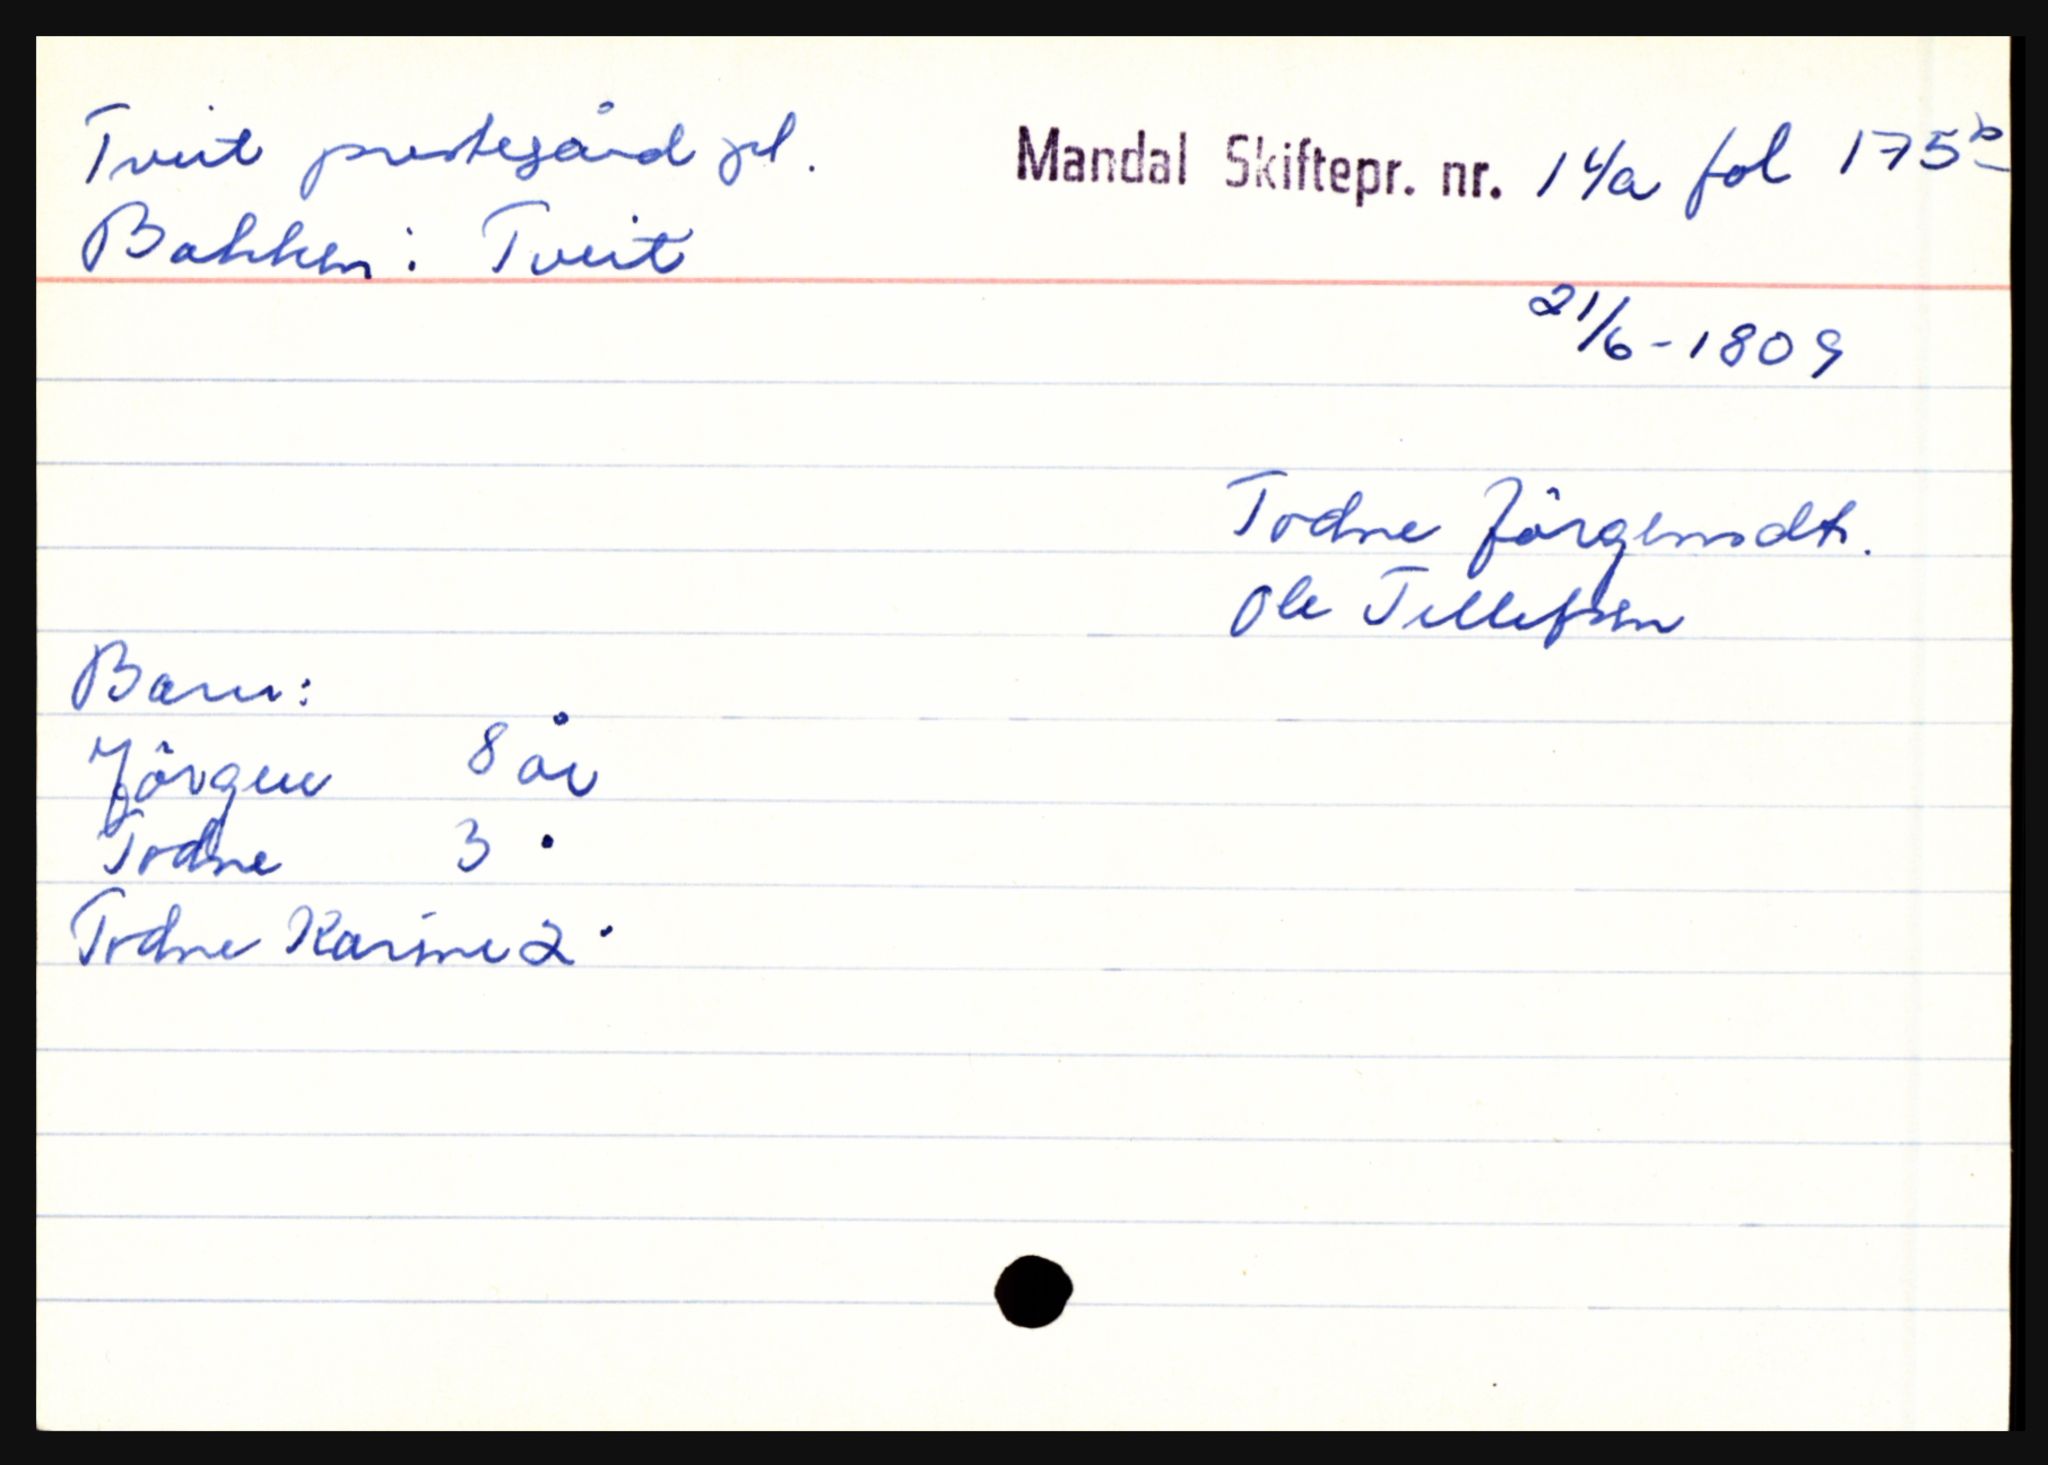 Tveit prestegård pl. Mandal Skiftepr. nr. 14a fol 175b
Bakken i Tveit
21/6-1809
Todne Jörgensdt.
Ole Tellefsen
Barn:
Jörgen 8 år
Todne 3 "
Todne Karine 2 "